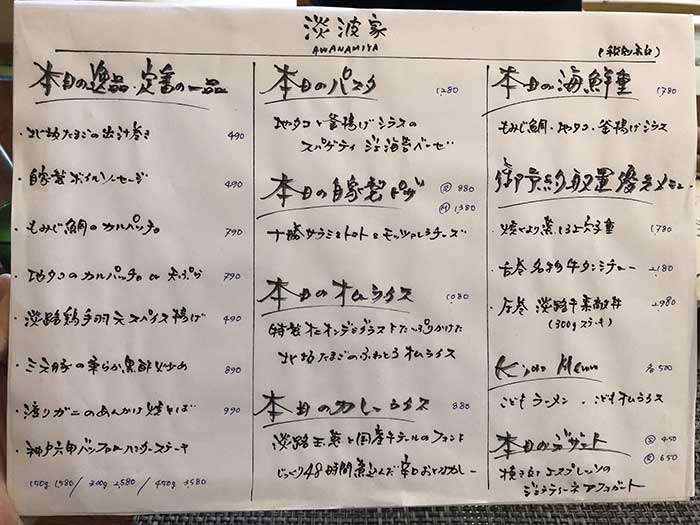 淡波家
AWANAMIYA
(税別表示)
本日の逸品・定番の一品
・北坂たまごの出汁巻き 490
・自家製ボイルソーセージ 490
・もみじ鯛のカルパッチョ 790
・地タコのカルパッチョ or 天ぷら 790
・淡路鶏手羽元スパイス揚げ 490
・三元豚の華らか黒酢炒め 890
・渡りガニのあんかけ焼そば 990
・神戸六甲バッファローハンガーステーキ
150g 1,980 / 300g 2,580 / 450g 3,580
本日のパスタ 1,280
地タコと釜揚げシラスの
スパゲティ ジェノベーゼ
本日の自家製ピザ Ⓢ 880
Ⓜ 1,380
十勝サラミとトマトとモッツァレラチーズ
本日のオムライス 1,080
特製オニオンデミグラスたっぷりかけた
北坂たまごのふわとろオムライス
本日のカレーライス 880
淡路玉葱と国産牛テールのフォンド
じっくり48時間煮込んだ辛口おとなカレー
本日の海鮮重 1,780
もみじ鯛・地タコ・釜揚げシラス
御予約取置優先メニュー
・焼くより蒸しろ穴子重 1,780
・古巻名物牛タンシチュー 2,180
・圧巻 淡路牛素敵丼 2,980
(300gステーキ)
Kids Menu 各500
こどもラーメン ・こどもオムライス
本日のデザート Ⓢ 450
Ⓡ 650
焼き立てエスプレッソの